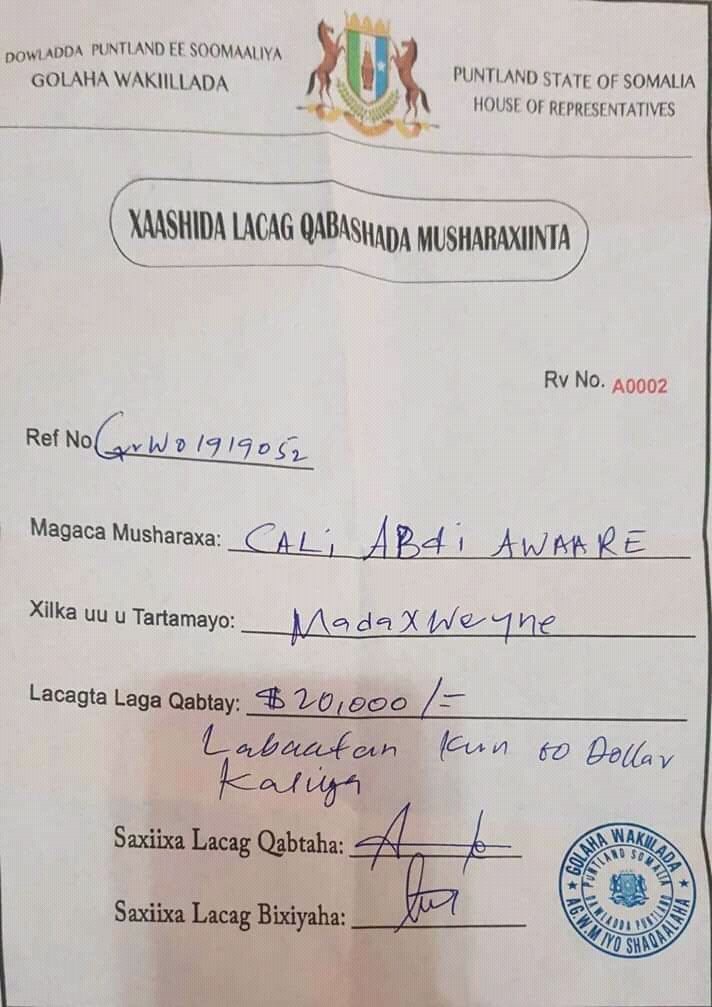 DOWLADDA PUNTLAND EE SOOMAALIYA
GOLAHA WAKIILLADA
PUNTLAND STATE OF SOMALIA
HOUSE OF REPRESENTATIVES
XAASHIDA LACAG QABASHADA MUSHARAXIINTA
Rv No. A0002
Ref No GrW01919052
Magaca Musharaxa: CALi ABdi AWAARE
Xilka uu u Tartamayo: MadaXWeyne
Lacagta Laga Qabtay: $20,000/=
Labaatan Kun oo Dollar
Kaliya
Saxiixa Lacag Qabtaha:
Saxiixa Lacag Bixiyaha:
GOLAHA WAKIILADA
PUNTLAND SOMALIA
DAWLADDA PUNTLAND
AG.W.M IYO SHAQAALAHA